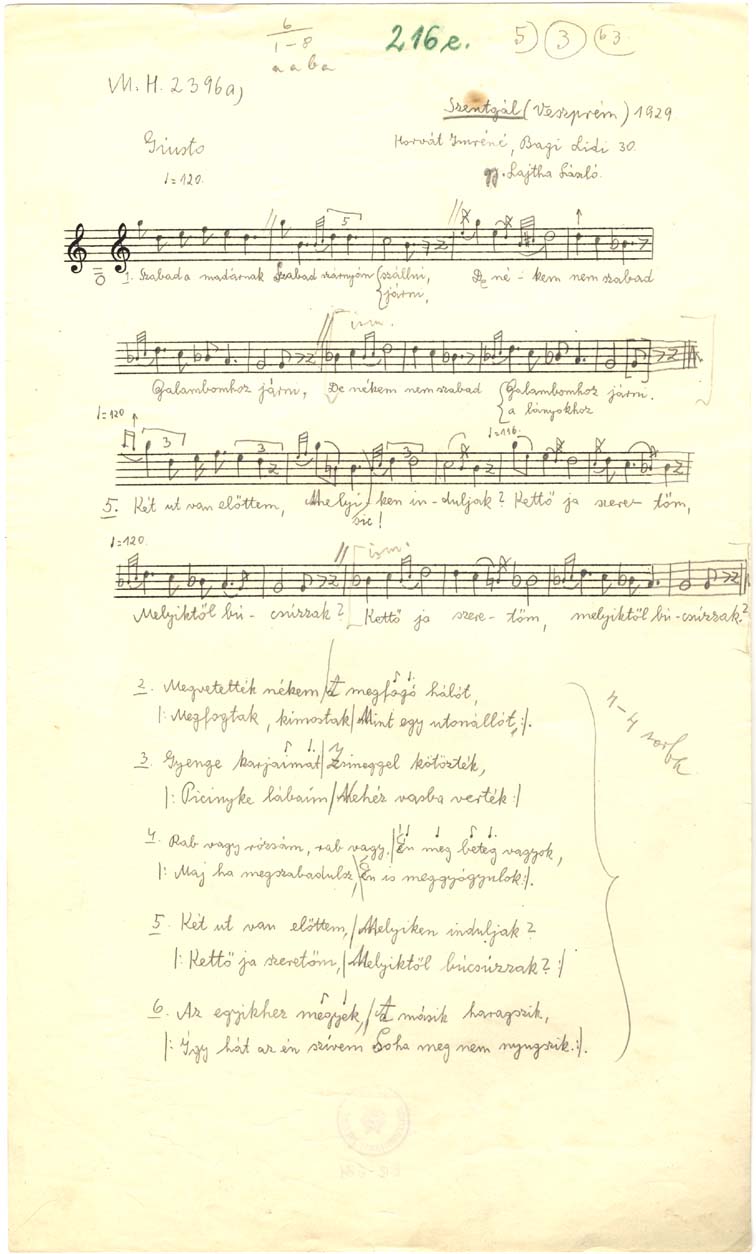 6
1-8
a a b a
216e.
5) 3 63
M.H. 2396a)
Szentgál (Veszprém) 1929
Giusto
Horvát Imréné, Bagi Lidi 30.
♩=120.
gy. Lajtha László.
5
1. Szabad a madárnak Szabad szárnyón {szállni, De né-kem nem szabad
{járni,
ism.
Galambomhoz járni, De nékem nem szabad {Galambomhoz járni.
{a lányokhoz
♩=120
3 3 3 ♩=116.
5. Két ut van előttem, Melyi-ken in-duljak? Kettő ja szere-tőm,
sic!
♩=120.
ism.
Melyiktől bú-csúzzak? Kettő ja szere-tőm, melyiktől bú-csúzzak?
2. Megvetették nékem / A megfogó hálót,
|: Megfogtak, kimostak / Mint egy utonállót, :|.
3. Gyenge karjaimat / Zsineggel kötözték,
|: Picinyke lábaim / Nehéz vasba verték :|
4. Rab vagy rózsám, rab vagy. / Én meg beteg vagyok,
|: Maj ha megszabadulsz, / Én is meggyógyulok :|.
5. Két ut van előttem, / Melyiken induljak?
|: Kettő ja szeretőm, / Melyiktől búcsúzzak? :|
6. Az egyikhez megyek, / A másik haragszik,
|: Így hát az én szívem Soha meg nem nyugszik :|.
4-4 sorba